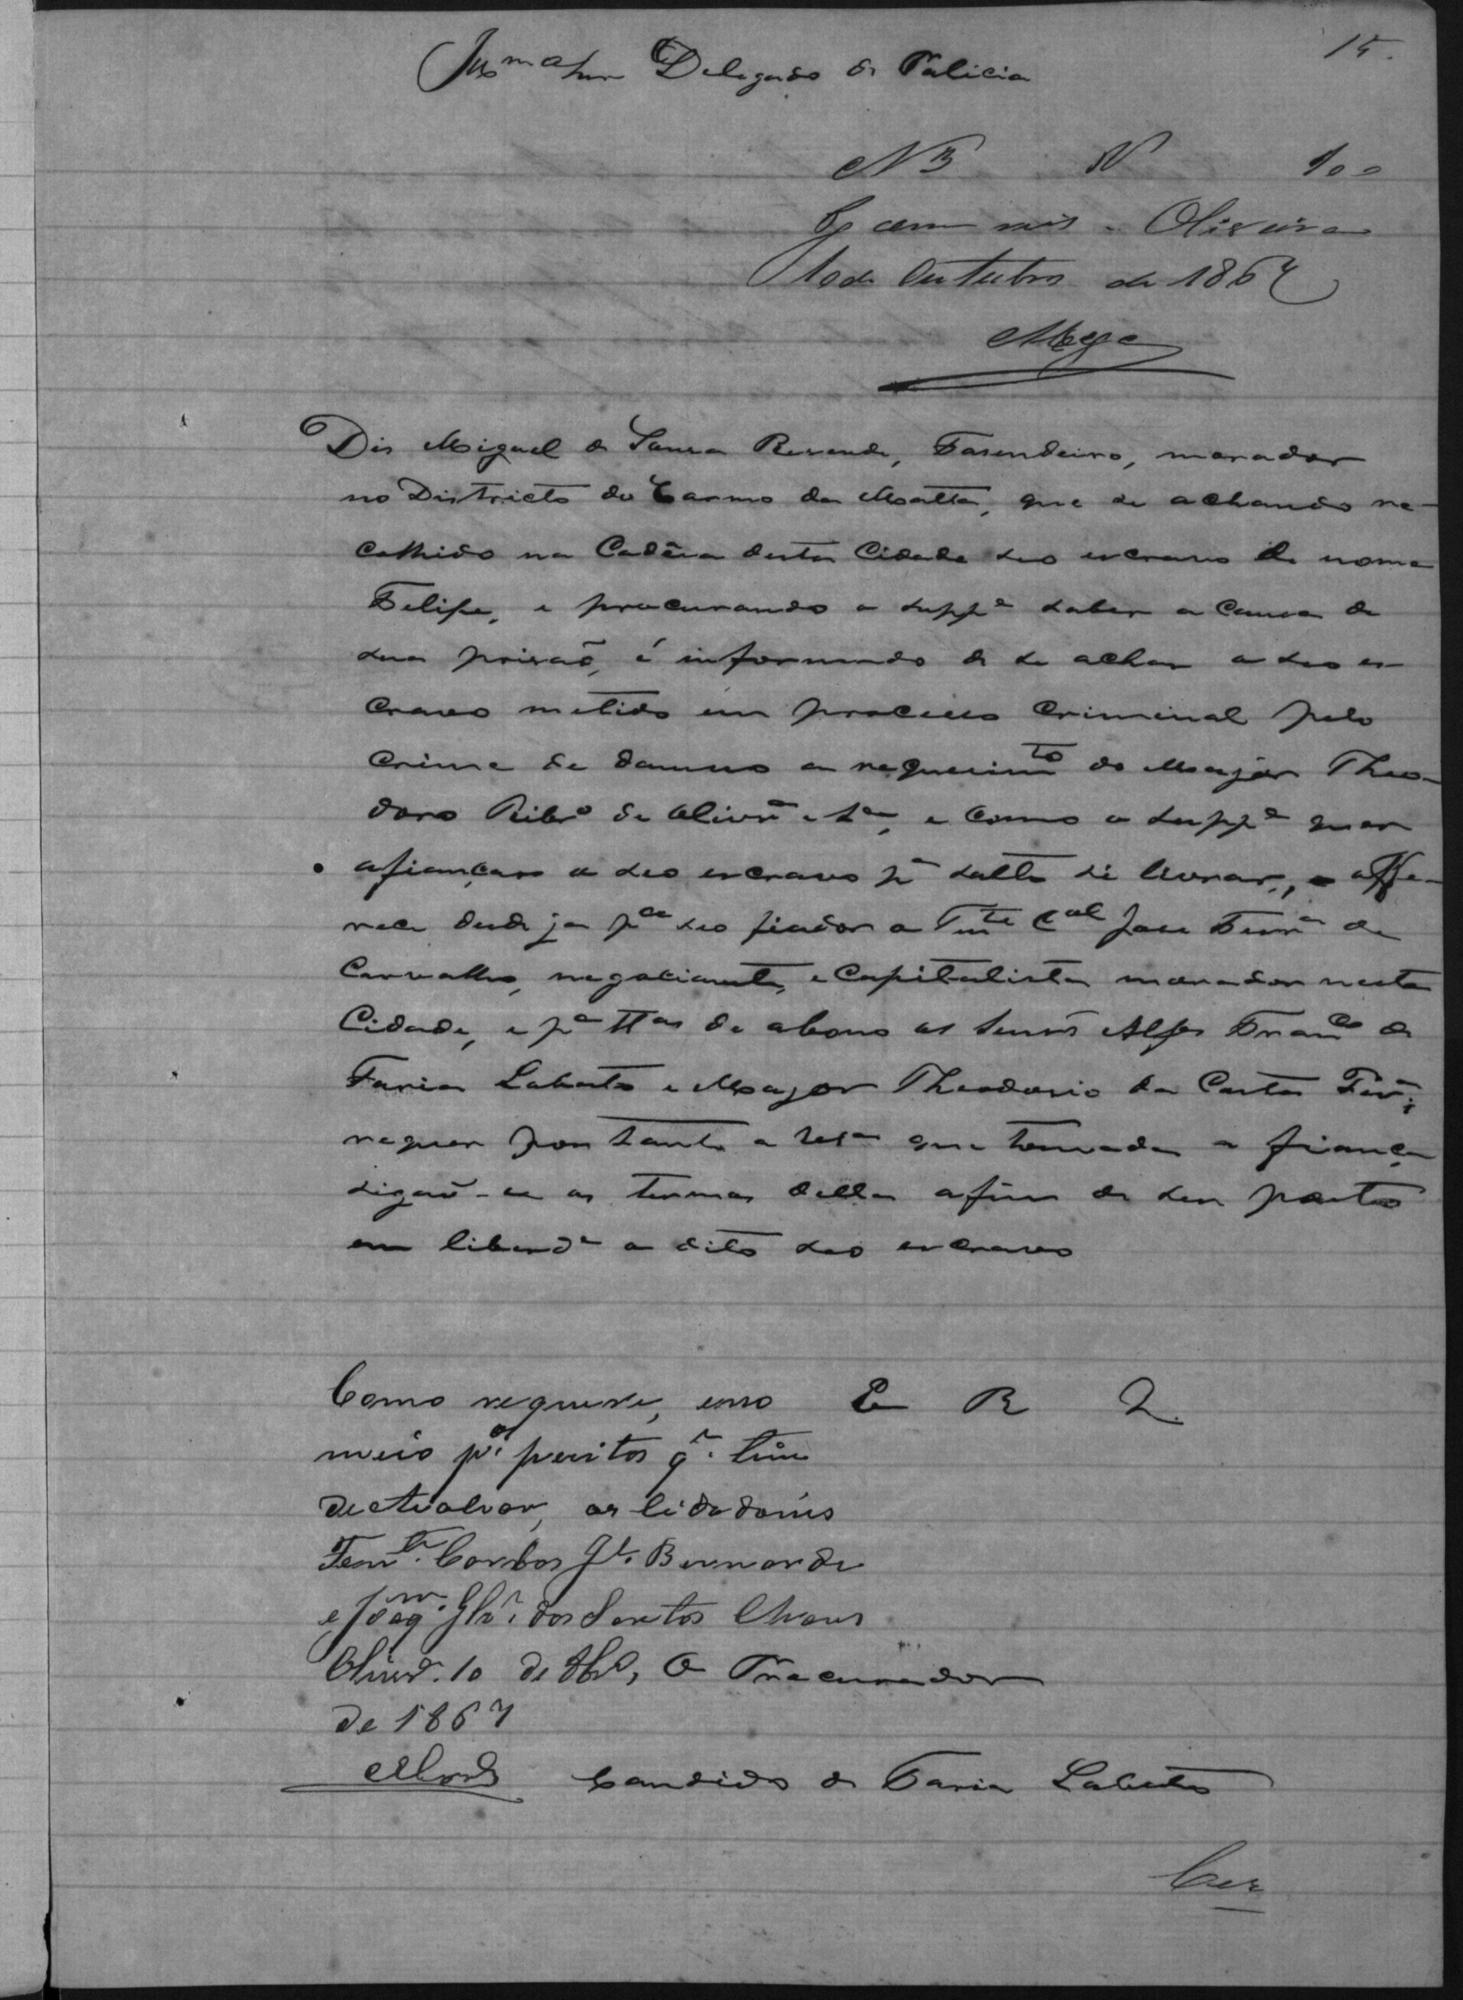 15.
Delegado de Policia
N 3 N 100
cem reis. Oliveira
10 de Outubro de 1867
Dis Miguel de Sousa Resende, Fasendeiro, morador
no Districto do Carmo da Matta, que se achando re-
colhido na Cadêia desta Cidade seo escravo de nome
Felipe, e procurando o suppe saber a causa de
sua prisaõ, é informado de se achar o seo es-
cravo metido em processo Criminal pelo
crime de damno a requerimto do Major Theo-
doro Ribro de Olivra e Sa, e como o suppe quer
afiançar o seo escravo pa solto se livrar, offe-
rece desde ja pa seo fiador o Tente Cel Jose Ferra de
Carvalho, negociante, e Capitalista morador nesta
Cidade, e pa ttas de abono os Senrs Alfes Franco de
Faria Lobato e Major Theodosio da Costa
requer por tanto a que tomada a fiança
sigaõ-se os termos della afim de ser posto
em liberde o dito seo escravo
Como requere, E R
meio pa peritos qe tem
de Avaliar, os Cidadões
Tente Carlos Bernarde
e Joaqm dos Santos Chaves
Olivra 10 de 8bro, O Procurador
de 1867
Candido de Faria Lobato